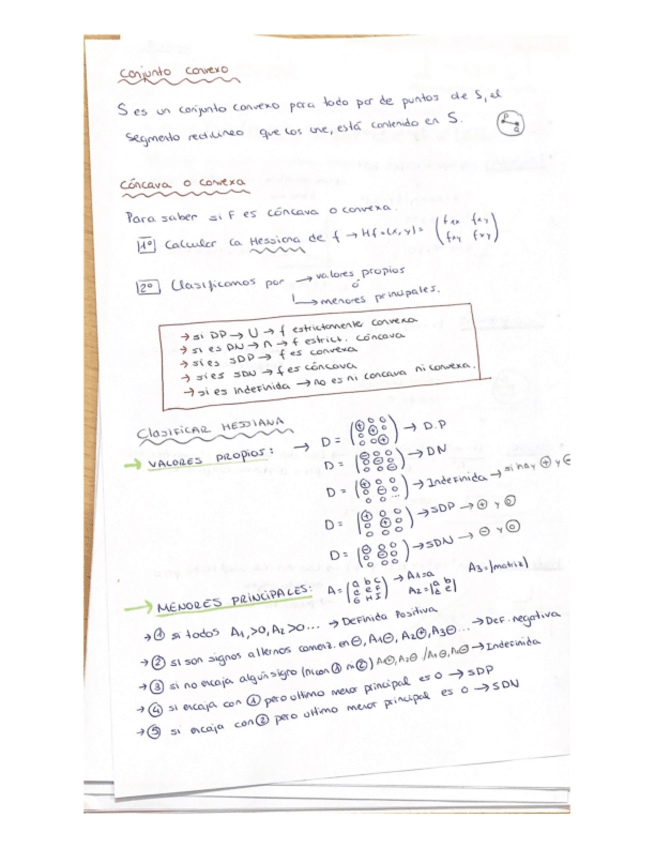 Conjunto convexo
S es un conjunto convexo para todo par de puntos de S, el
segmento rectilíneo que los une, está contenido en S.
P
Q
Cóncava o convexa
Para saber si F es cóncava o convexa.
1º Calcular la Hessiana de f → Hf=(x,y)= (fxx fxy
fxy fyy)
2º Clasificamos por → valores propios
ó
→ menores principales.
→ si DP → U → f estrictamente convexa
→ si es DN → ∩ → f estrict. cóncava
→ si es SDP → f es convexa
→ si es SDN → f es cóncava
→ si es indefinida → no es ni concava ni convexa.
Clasificar HESSIANA
→ VALORES PROPIOS: → D = (⊕ 0 0
0 ⊕ 0
0 0 ⊕) → D.P
D = (⊖ 0 0
0 ⊖ 0
0 0 ⊖) → DN
D = (⊕ 0 0
0 ⊖ 0
0 0 ...) → Indefinida → si hay ⊕ y ⊖
D = (⊕ 0 0
0 ⊕ 0
0 0 0) → SDP → ⊕ y 0
D = (⊖ 0 0
0 ⊖ 0
0 0 0) → SDN → ⊖ y 0
→ MENORES PRINCIPALES: A = (a b c
d e f
G H I) → A1=a
A2=|a b
d e|
A3=|matriz|
→ ① si todos A1>0, A2>0... → Definida Positiva
→ ② si son signos alternos comenz. en ⊖, A1⊖, A2⊕, A3⊖... → Def. negativa
→ ③ si no encaja algún signo (ni con ① ni ②) A1⊖, A2⊖ / A1⊖, A2⊖ → Indefinida
→ ④ si encaja con ① pero ultimo menor principal es 0 → SDP
→ ⑤ si encaja con ② pero ultimo menor principal es 0 → SDN